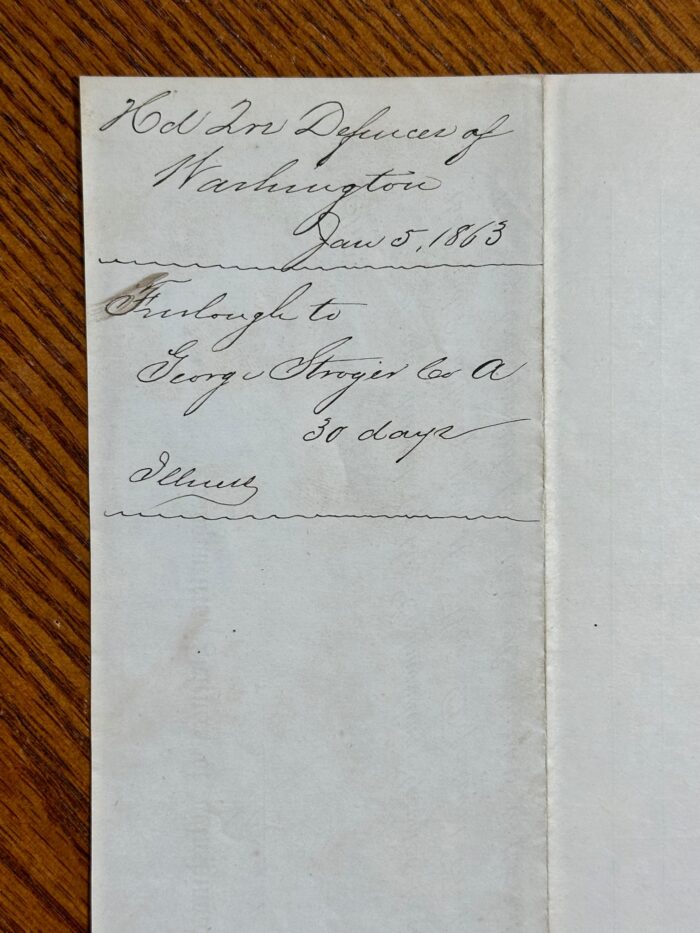 Hd Qrs Defences of
Washington
Jan 5, 1863
Furlough to
George Stroyer Co A
30 days
Illness